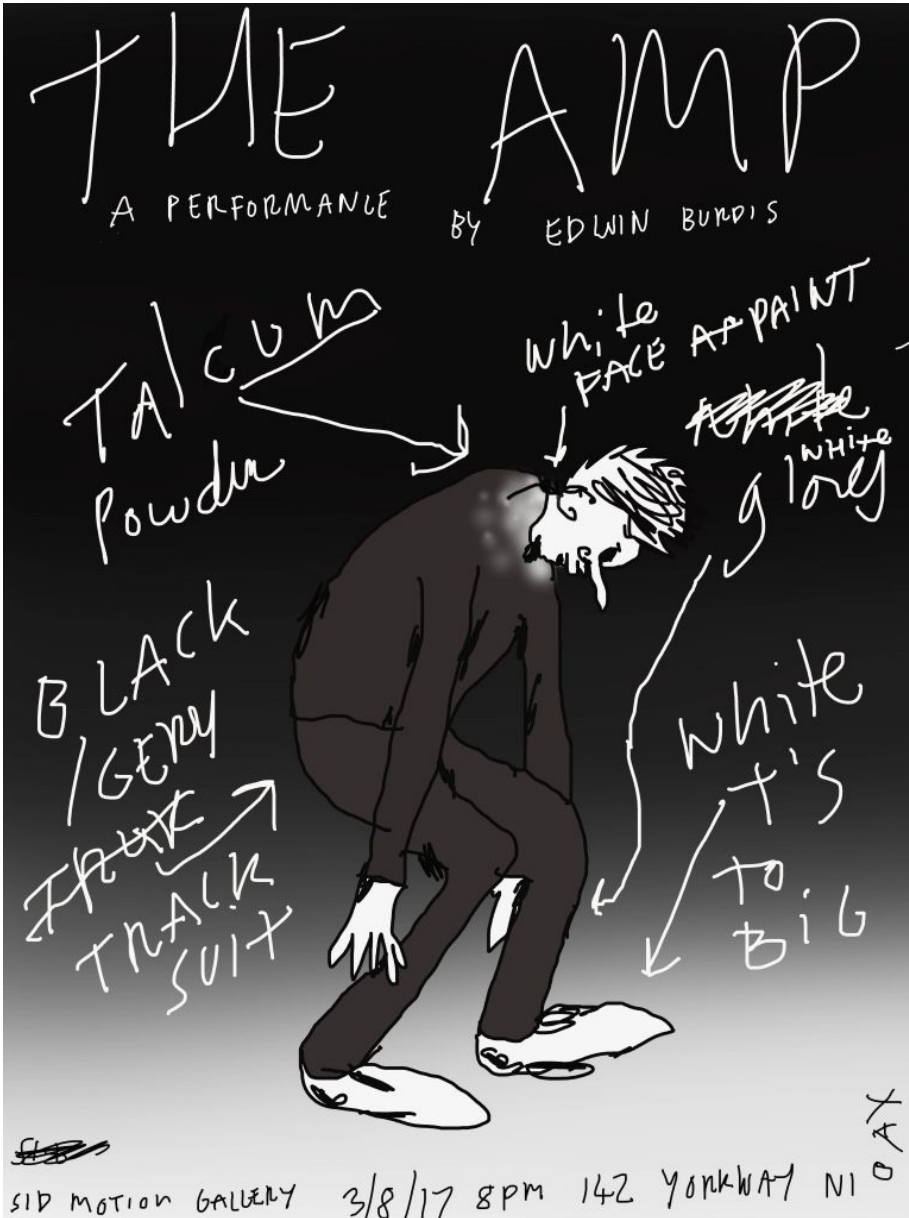 THE AMP
A PERFORMANCE BY EDWIN BURDIS
Talcum
Powder
white
FACE PAINT
WHITE
gloves
BLACK
/GERY
TRACK
SUIT
white
T'S
TO
BIG
SID MOTION GALLERY 3/8/17 8PM 142 YORKWAY N1
0AX